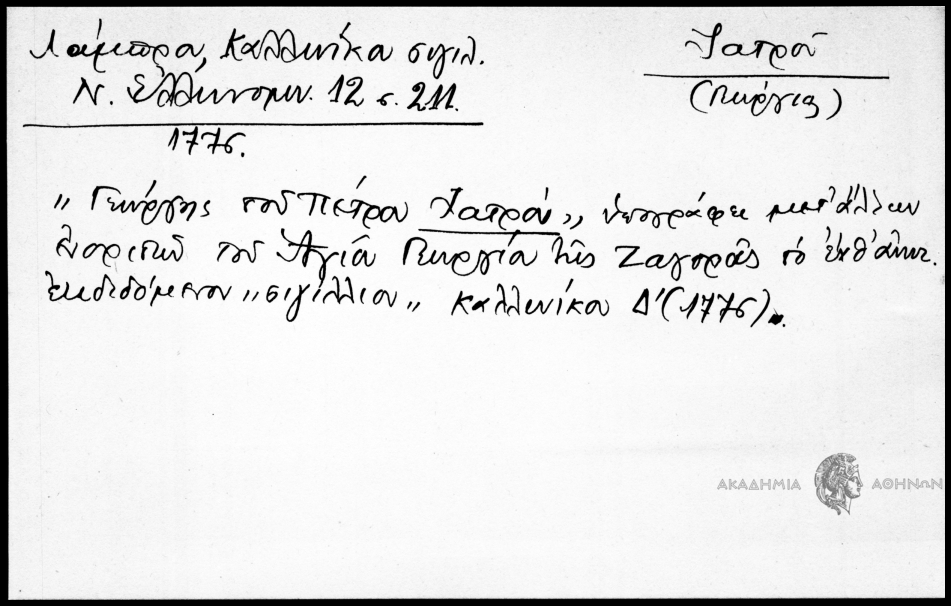 Λάμπρα, Καλλινίκου σιγιλ.
Ν. Ἑλληνομν. 12 σ. 211.
1776.
Ἰατροῦ
(Γεώργιος)
„ Γεώργης τοῦ Πέτρου Ἰατροῦ „ ὑπογράφει μετ' ἄλλων
ἐνοριτῶν τοῦ Ἁγίου Γεωργίου τῆς Ζαγορᾶς τὸ
ἐκδιδόμενον „σιγίλλιον„ Καλλινίκου Δ' (1776).
ΑΚΑΔΗΜΙΑ ΑΘΗΝΩΝ